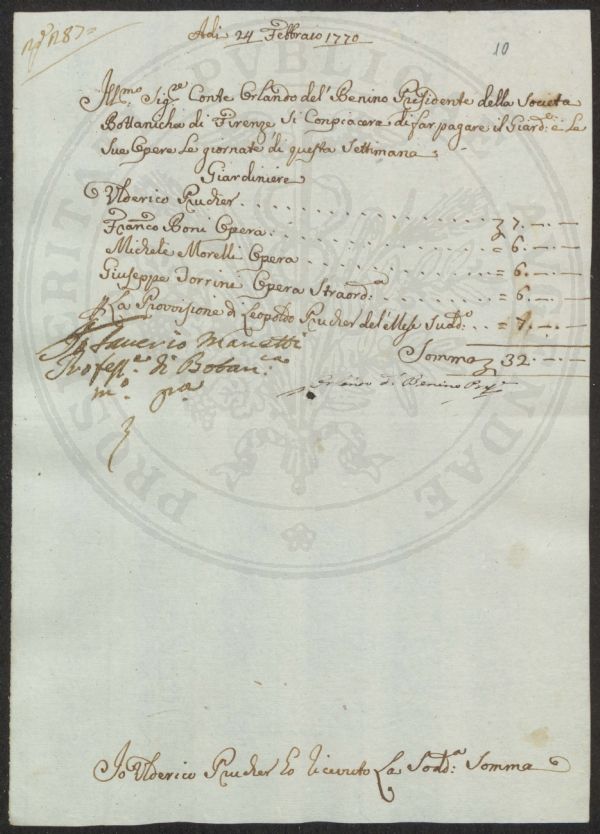 N.º 287
Adi 24 Febbraio 1770
10
Ill.mo Sig.re Conte Orlando del' Benino Presidente della Società
Bottanicha di Firenze Si Conpiacerà di far pagare il Giard.e e le
Sue Opere Le giornate di questa Settimana
Giardiniere
Ulderico Prucher . . . . . . . . . . . . 7. — . —
Franco Boni Opera . . . . . . . . . . = 6. — . —
Michele Morelli Opera . . . . . . . . = 6. — . —
Giuseppe Dorrini Opera Straord.a . . = 6. — . —
La Provisione di Leopoldo Prucher del' Mese Sudd.o . . = 7. — . —
Somma 32. — . —
Saverio Manetti
Profess.e di Botan.ca
m.o pp.a
Orlando del Benino Pre.
Io Ulderico Prucher ho ricevuto La Sudd.a Somma
PUBLICAE
PROSPERITATI
AUGENDAE